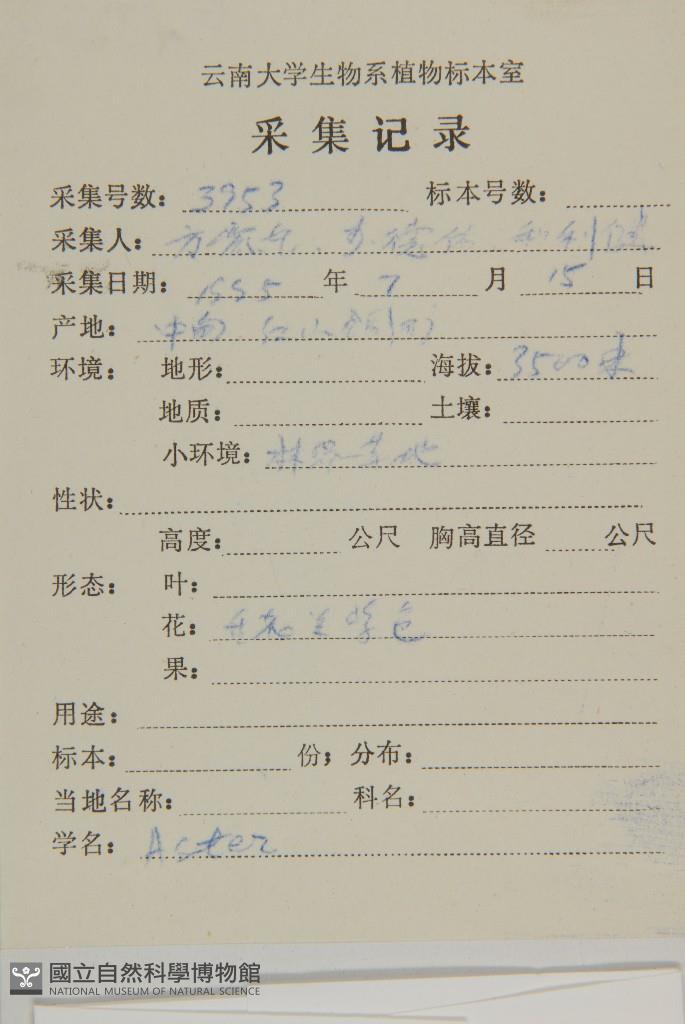 云南大学生物系植物标本室
采集记录
采集号数: 3953 标本号数:
采集人: 和利健
采集日期: 1995 年 7 月 15 日
产地: 中甸 红山
环境: 地形: 海拔: 3500米
地质: 土壤:
小环境: 林缘草地
性状:
高度: 公尺 胸高直径 公尺
形态: 叶:
花: 紫色
果:
用途:
标本: 份; 分布:
当地名称: 科名:
学名: Aster
國立自然科學博物館
NATIONAL MUSEUM OF NATURAL SCIENCE